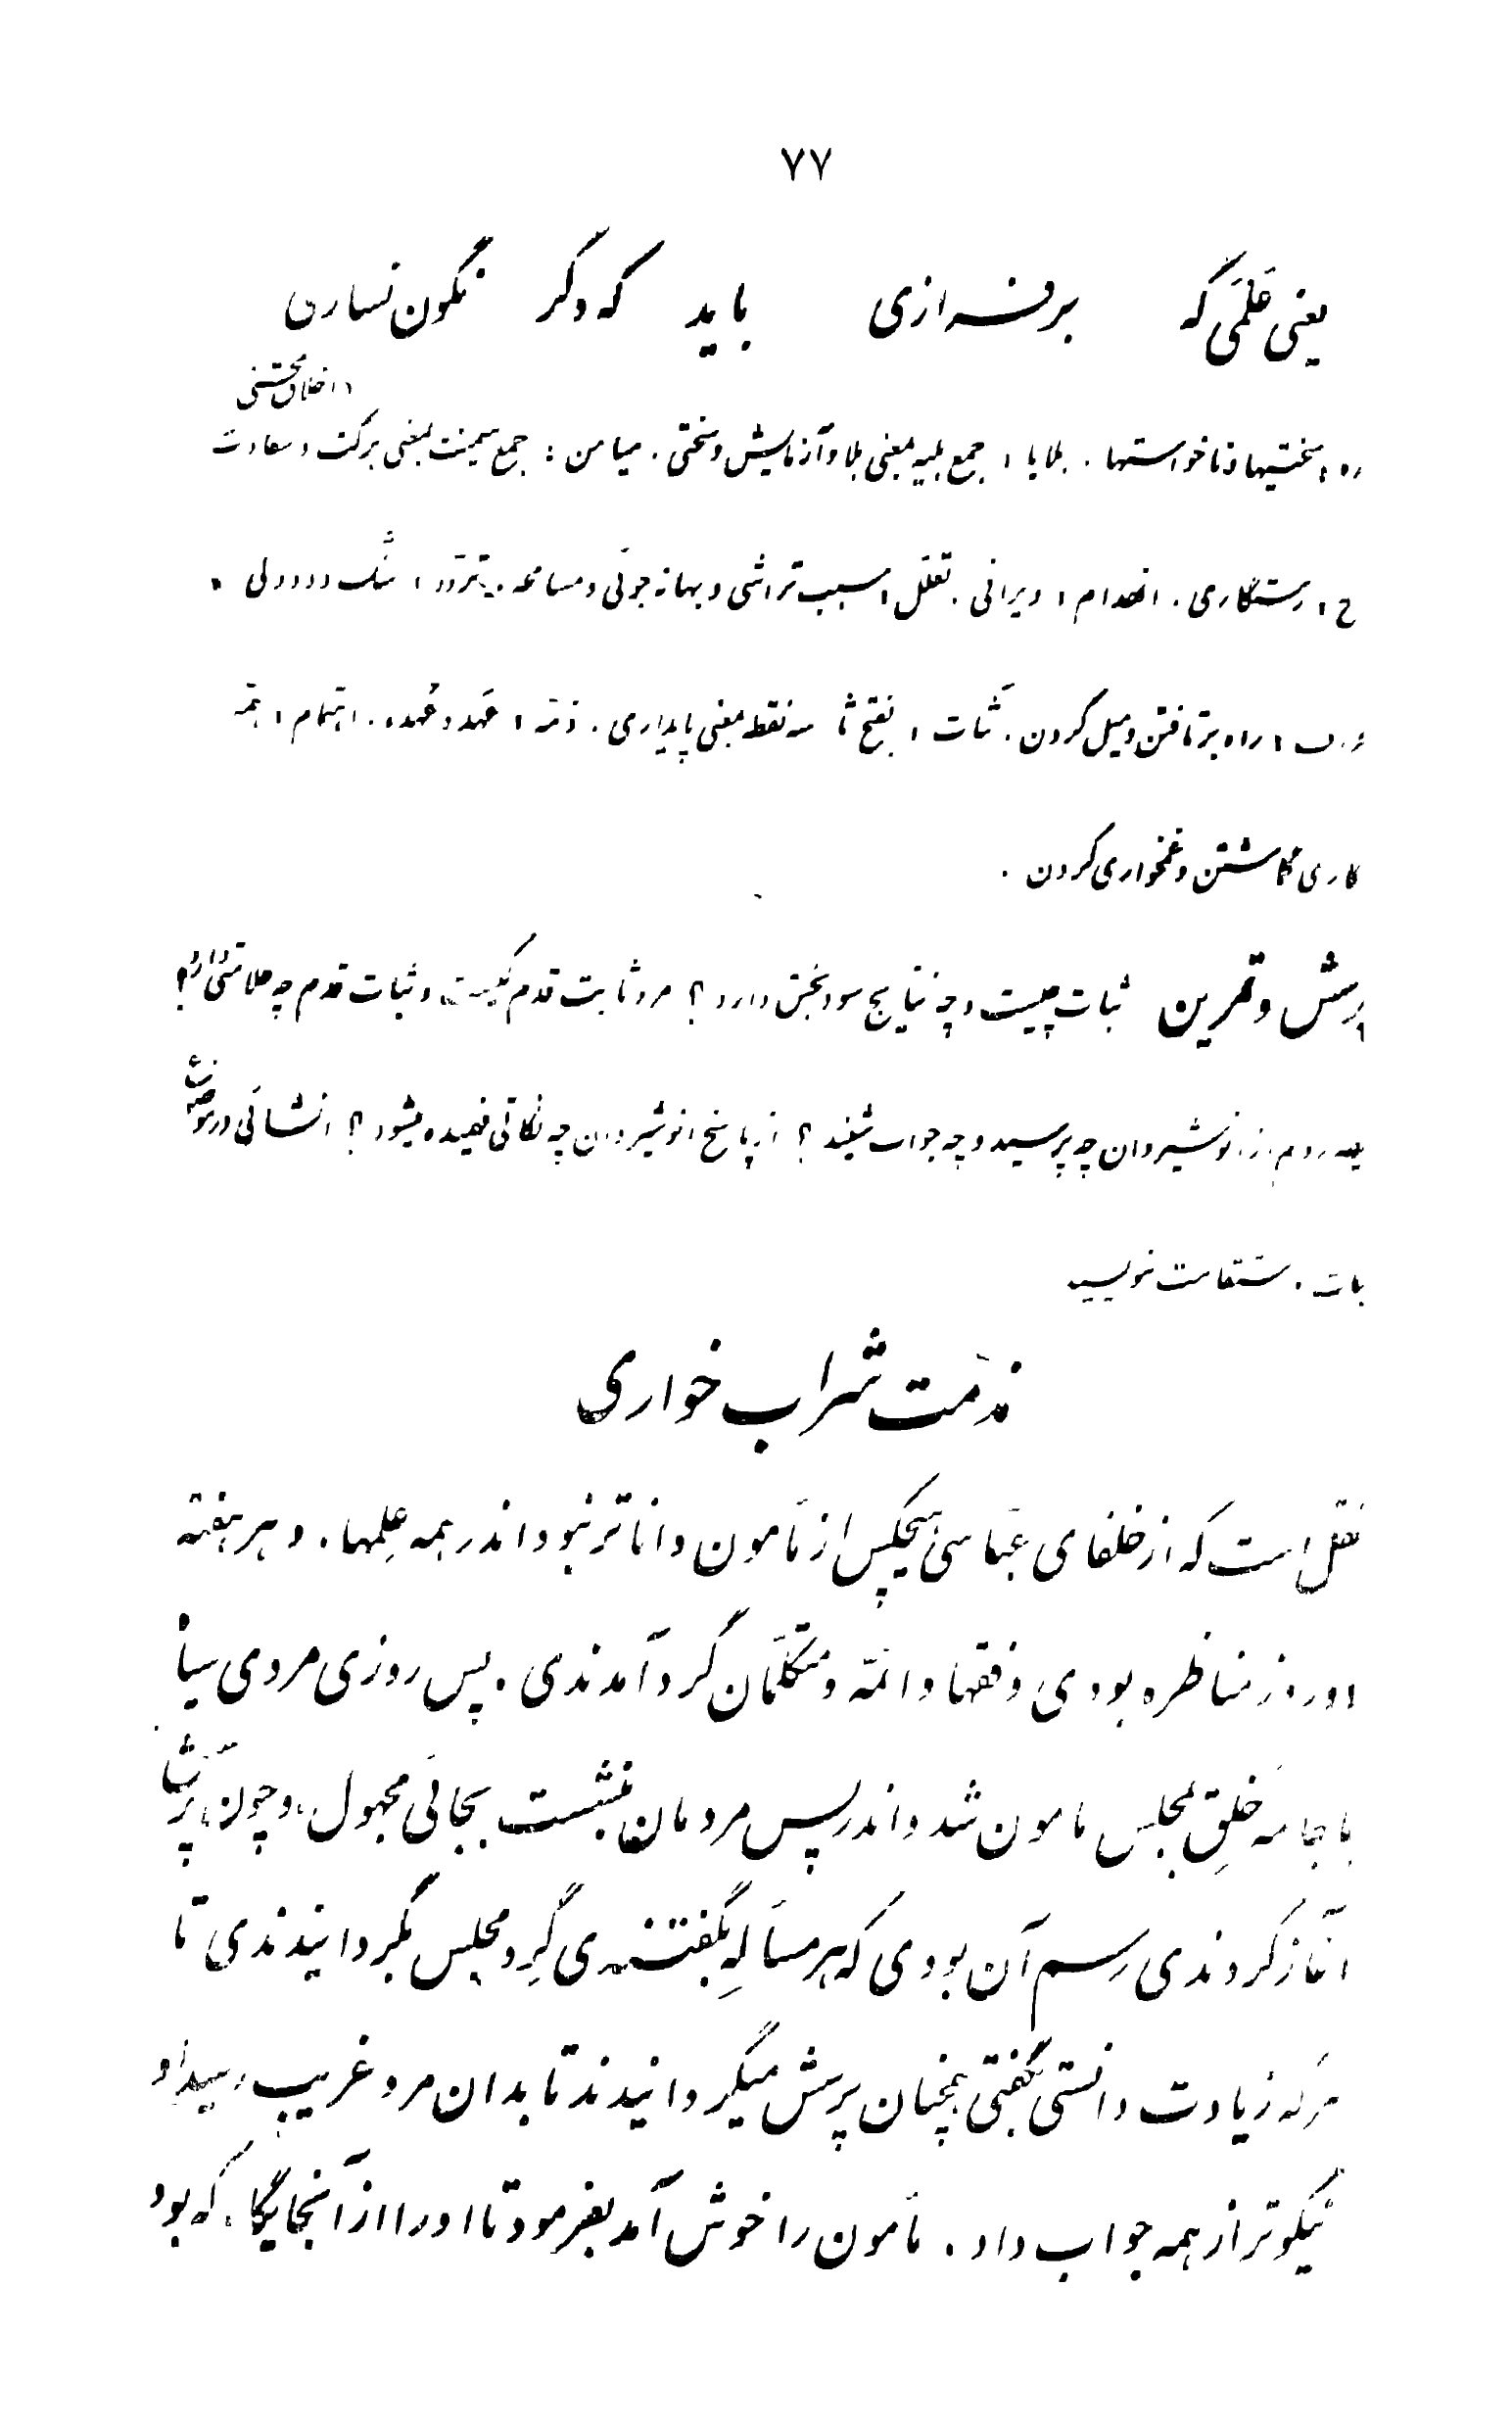 ۷۷
یعنی عَلَمی که برفرازی باید که دگر نگون نسازی
(اخلاق محسنی)
سختیها و ناخواستها . بلایا : جمع بلیه بمعنی بلا و آزمایش و سختی . میامن : جمع میمنت بمعنی برکت و سعادت
رستگاری . انهدام : ویرانی . تعلّل : سبب تراشی و بهانه جوئی و مسامحه . تردّد : شک و دودلی .
راه برتافتن و میل کردن . ثبات : بفتح ثا سه نقطه بمعنی پایداری . ذمّه : عهد و عُهده . اهتمام : همّه
کاری گماشتن و غمخواری کردن .
پرسش و تمرین ثبات چیست و چه نتایج سودبخش دارد ؟ مرد ثابت قدم کیست و ثبات قدم چه علامتی دارد ؟
روم از انوشیروان چه پرسید و چه جواب شنید ؟ از پاسخ انوشیروان چه نکاتی فهمیده میشود ؟ انشائی در موضوع
استقامت نویسید
مذمّت شراب خواری
نقل است که از خلفای عبّاسی هیچکس از مأمون داناتر نبود اندر همه علمها . و هر هفته
دو روز مناظره بودی و فقها و ائمّه و متکلّمان گرد آمدندی . پس روزی مردی بیامد
با جامه خَلِق بمجلس مامون شد و اندر پس مردمان بنشست بجائی مجهول ، و چون پرسش
آغاز کردندی رسم آن بودی که هر مسألهٔ بگفتندی گِرد مجلس بگردانیدندی تا
هرکه زیادت دانستی بگفتی همچنان پرسش میگردانیدند تا بدان مرد غریب رسید او
نیکوتر از همه جواب داد . مأمون را خوش آمد بفرمود تا او را از آنجایگاه که بود